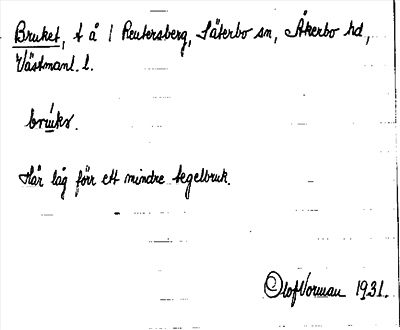 Bruket, t å 1 Reutersberg, Säterbo sn, Åkerbo hd,
Västmanl. l.
bruks.
Här låg förr ett mindre tegelbruk.
Olof Vorman 1931.